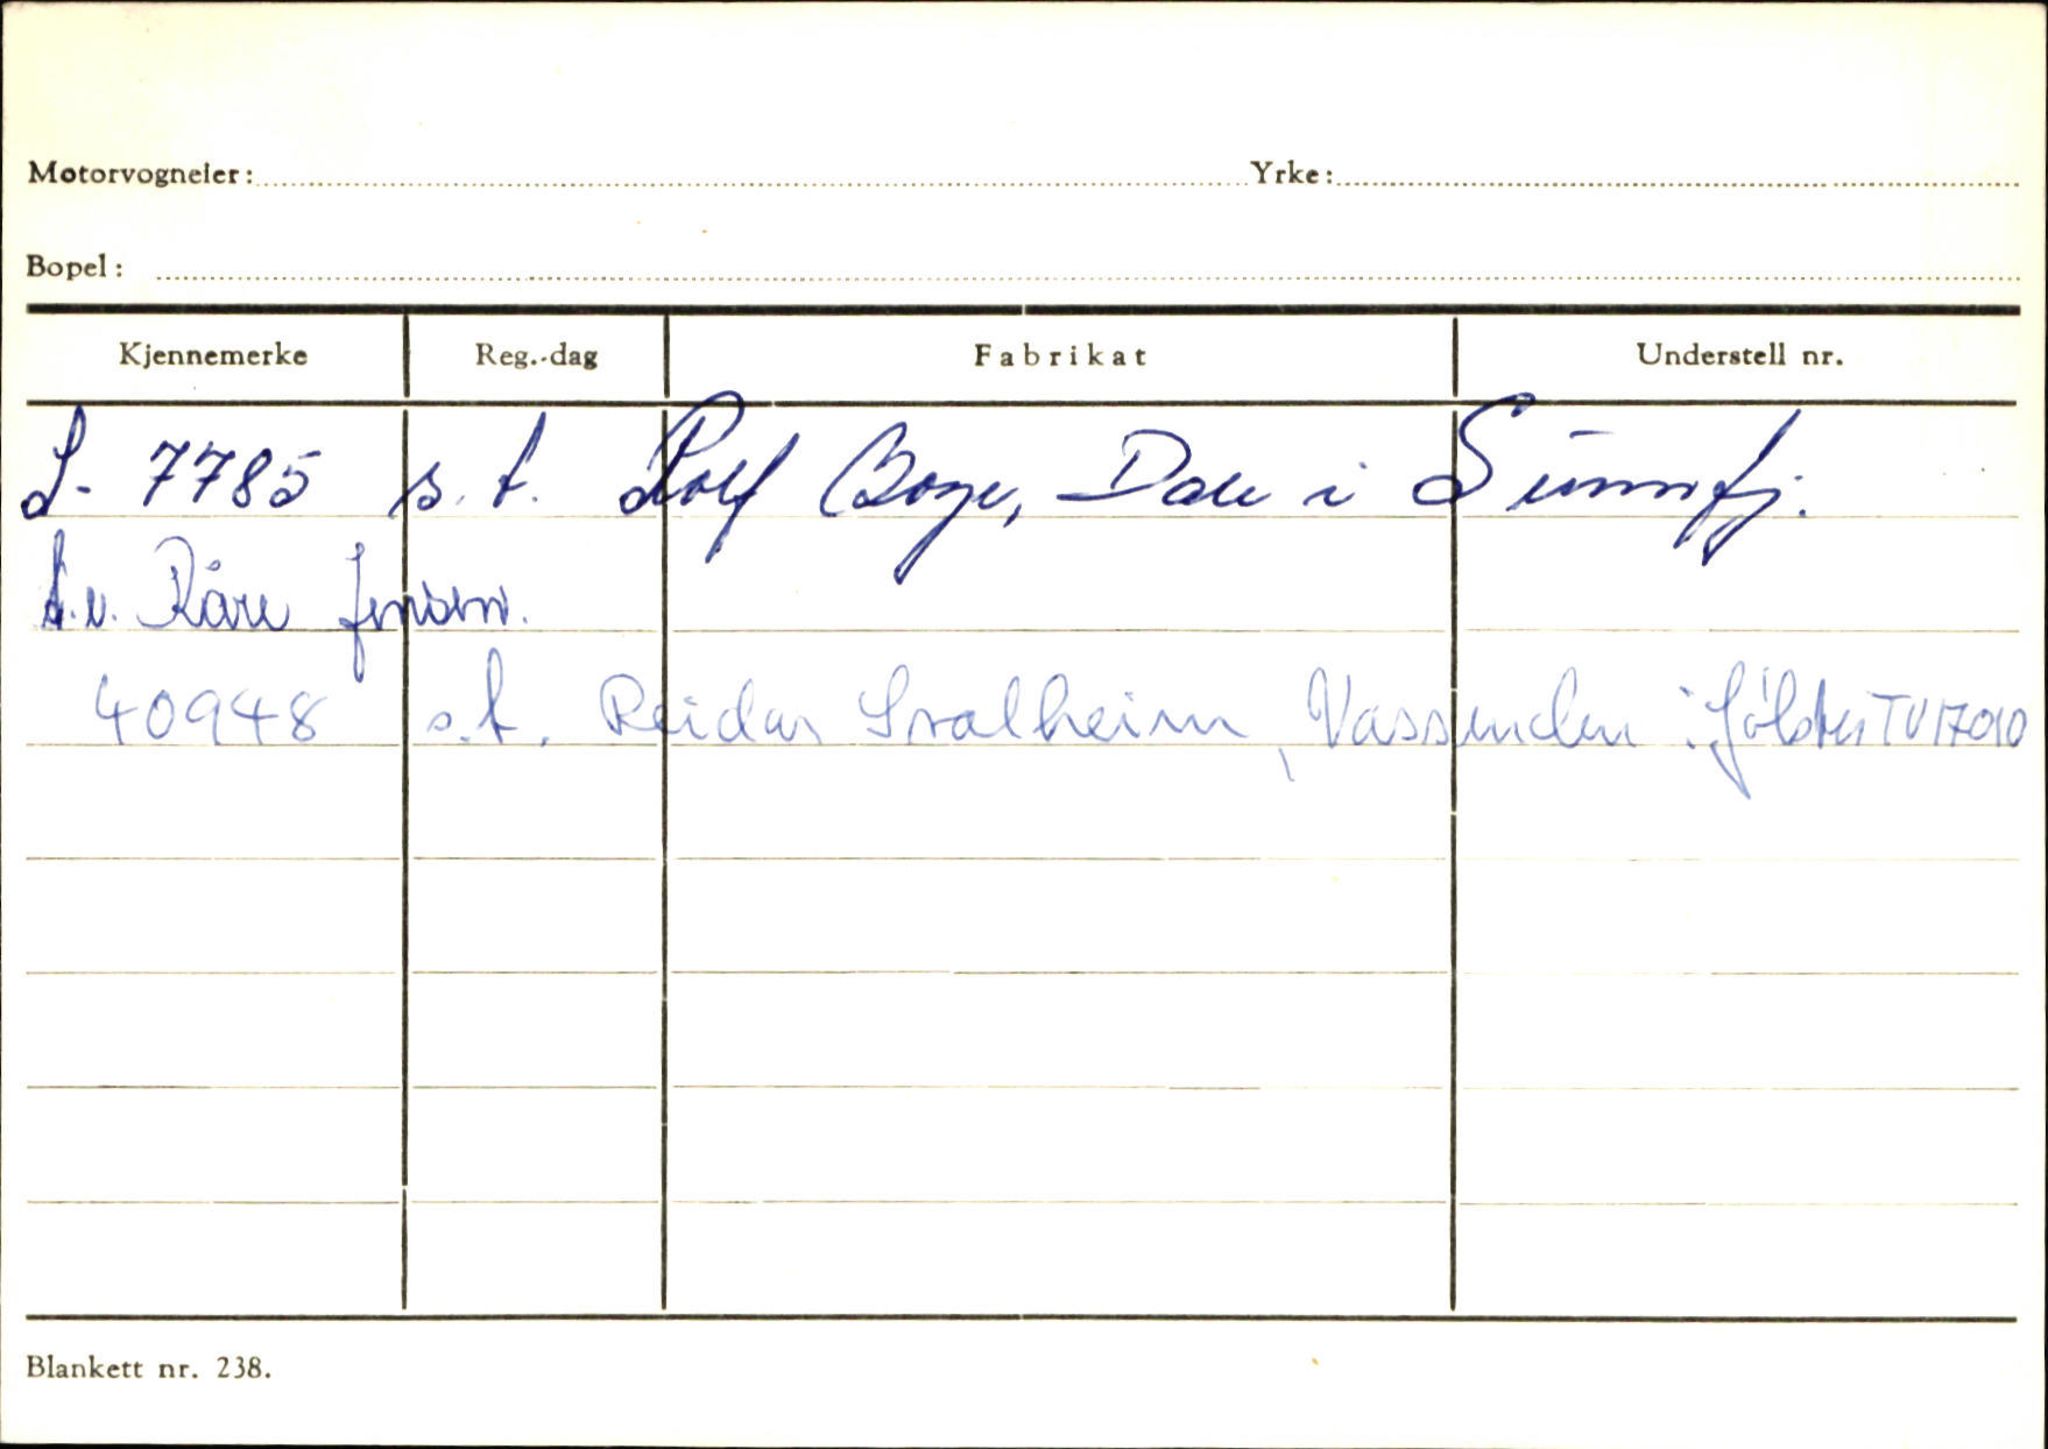 Motorvogneier: Yrke:
Bopel:
Kjennemerke Reg.-dag Fabrikat Understell nr.
S- 7785 s.t. Rolf Boge, Dale i Sunnfj.
d.v. Kåre Jensen.
40948 s.t. Reidar Svalheim, Vassenden i Jölster TV17010
Blankett nr. 238.